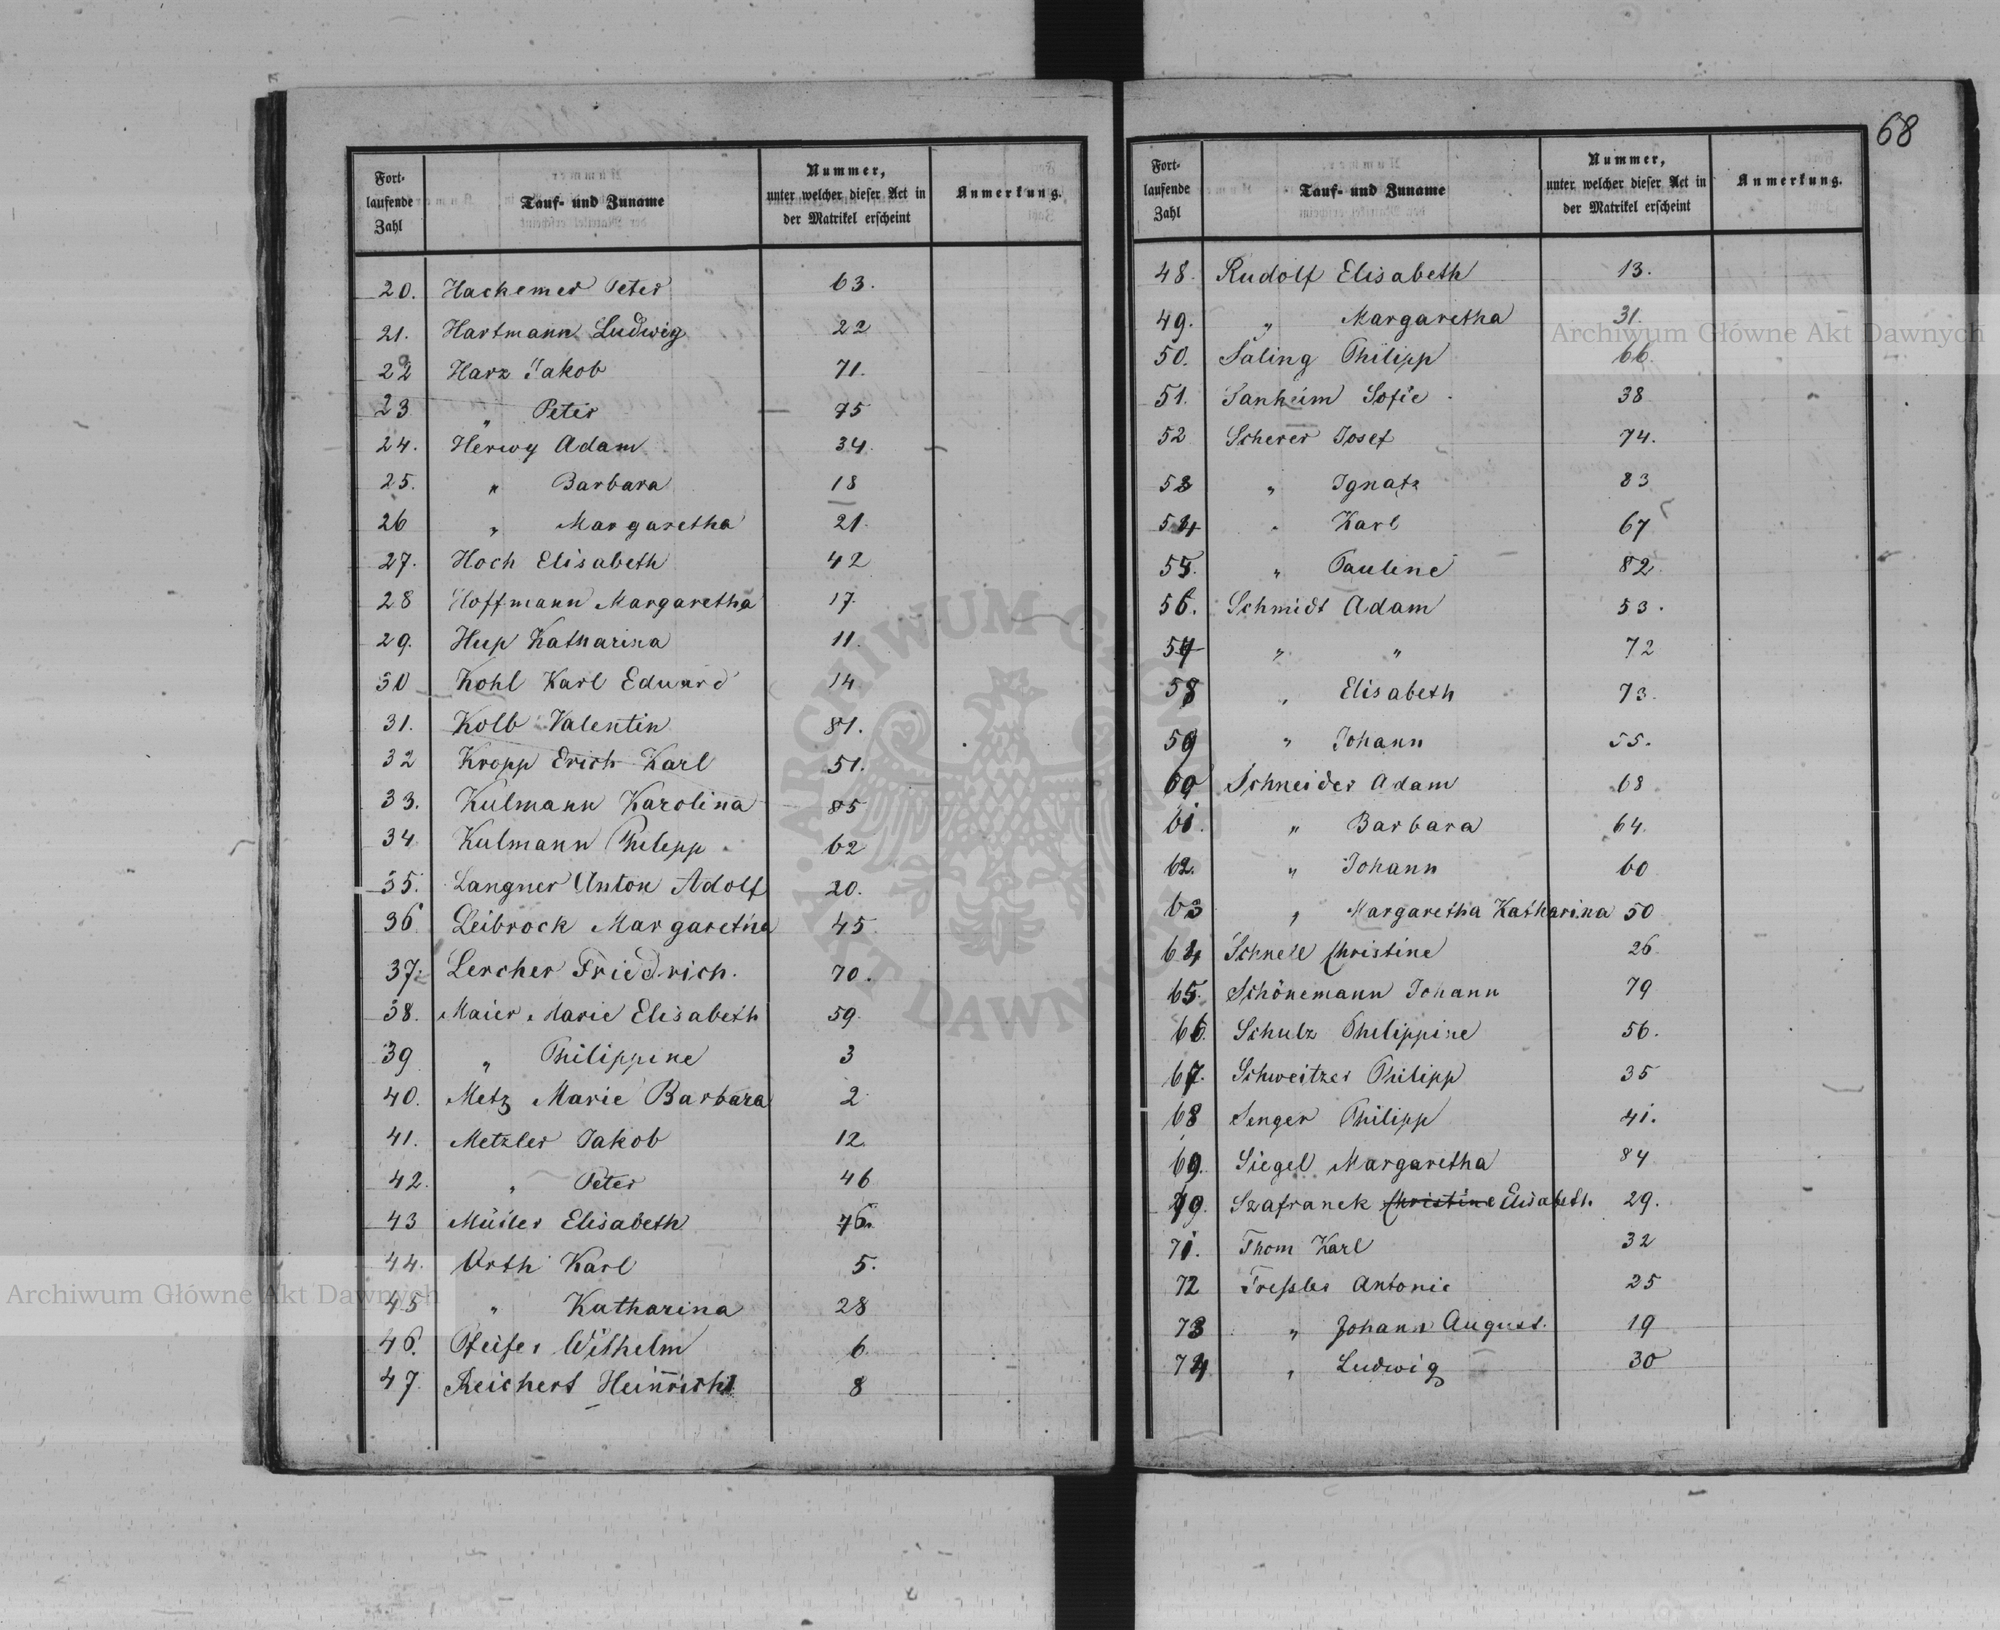 68
Fort-
laufende
Zahl
Tauf- und Zuname
Nummer,
unter welcher dieser Act in
der Matrikel erscheint
Anmerkung.
20. Hackemer Peter 63.
21. Hartmann Ludwig 22
22 Harz Jakob 71.
23 " Peter 75
24. Herwy Adam 34
25. " Barbara 18
26 " Margaretha 21.
27. Hoch Elisabeth 42
28 Hoffmann Margaretha 17.
29. Hup Katharina 11.
30 Kohl Karl Eduard 14.
31. Kolb Valentin 81.
32 Kropp Erich Karl 51.
33. Kulmann Karolina 85
34 Kulmann Philipp 62
35. Langner Anton Adolf 20.
36 Leibrock Margaretha 45
37. Lercher Friedrich. 70.
38. Maier Marie Elisabeth 59.
39 " Philippine 3
40. Metz Marie Barbara 2
41. Metzler Jakob 12.
42. " Peter 46
43 Müller Elisabeth 76.
44. Orth Karl 5.
45 " Katharina 28
46. Pfeifer Wilhelm 6
47. Reichert Heinrich 8
Fort-
laufende
Zahl
Tauf- und Zuname
Nummer,
unter welcher dieser Act in
der Matrikel erscheint
Anmerkung.
48. Rudolf Elisabeth 13.
49. " Margaretha 31.
50. Saling Philipp 66.
51. Sanheim Sofie 38
52 Scherer Josef 74.
53 " Ignatz 83
54 " Karl 67
55. " Pauline 82
56. Schmidt Adam 53.
57 " " 72
58 " Elisabeth 73.
59 " Johann 55.
60 Schneider Adam 68
61. " Barbara 64.
62. " Johann 60
63 " Margaretha Katharina 50
64 Schnell Christine 26
65. Schönemann Johann 79
66. Schulz Philippine 56.
67. Schweitzer Philipp 35
68 Senger Philipp 41.
69. Siegel Margaretha 84
70. Szafranek Christine Elisabeth. 29.
71. Thom Karl 32
72 Treßler Antonie 25
73 " Johann August. 19
74 " Ludwig 30
Archiwum Główne Akt Dawnych
Archiwum Główne Akt Dawnych